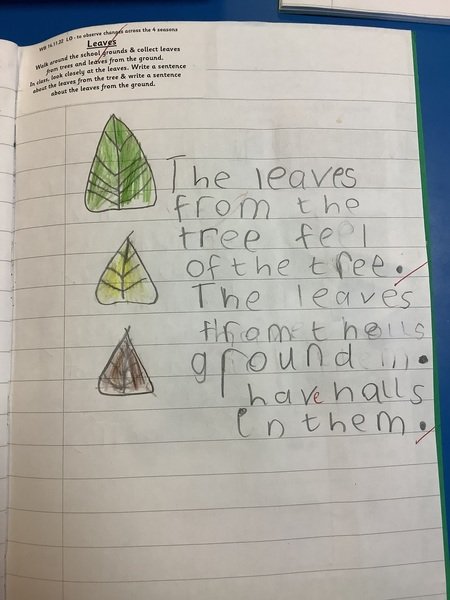 WB 16.11.22 LO - to observe changes across the 4 seasons
Leaves
Walk around the school grounds & collect leaves
from trees and leaves from the ground.
In class, look closely at the leaves. Write a sentence
about the leaves from the tree & write a sentence
about the leaves from the ground.
The leaves
from the
tree feel
of the tree.
The leaves
from the
ground
have halls
in them.